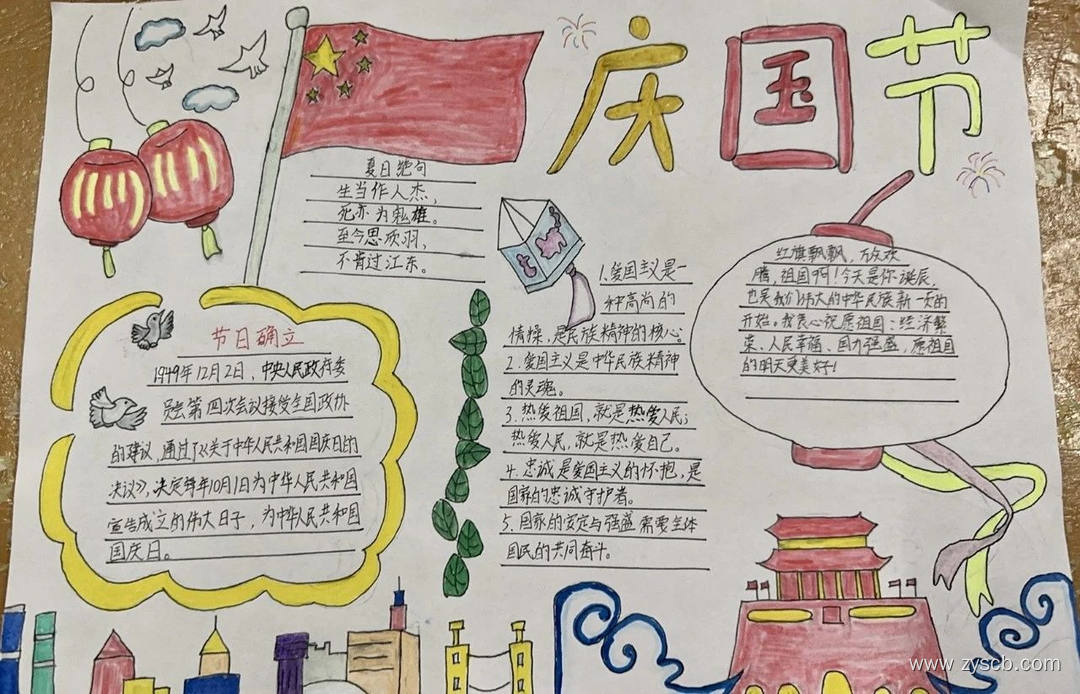 庆国节
夏日绝句
生当作人杰，
死亦为鬼雄。
至今思项羽，
不肯过江东。
节日确立
1949年12月2日，中央人民政府委
员会第四次会议接受全国政协
的建议，通过了《关于中华人民共和国国庆日的
决议》，决定每年10月1日为中华人民共和国
宣告成立的伟大日子，为中华人民共和国
国庆日。
1.爱国主义是一
种高尚的
情操，是民族精神的核心；
2.爱国主义是中华民族精神
的灵魂。
3.热爱祖国，就是热爱人民；
热爱人民，就是热爱自己。
4.忠诚是爱国主义的怀抱，是
国家的忠诚守护者。
5.国家的安定与强盛需要全体
国民的共同奋斗。
红旗飘飘，万众欢
腾，祖国啊！今天是你诞辰，
也是我们伟大的中华民族新一天的
开始。我衷心祝愿祖国：经济繁
荣、人民幸福、国力强盛，愿祖国
的明天更美好！
www.zyscb.com